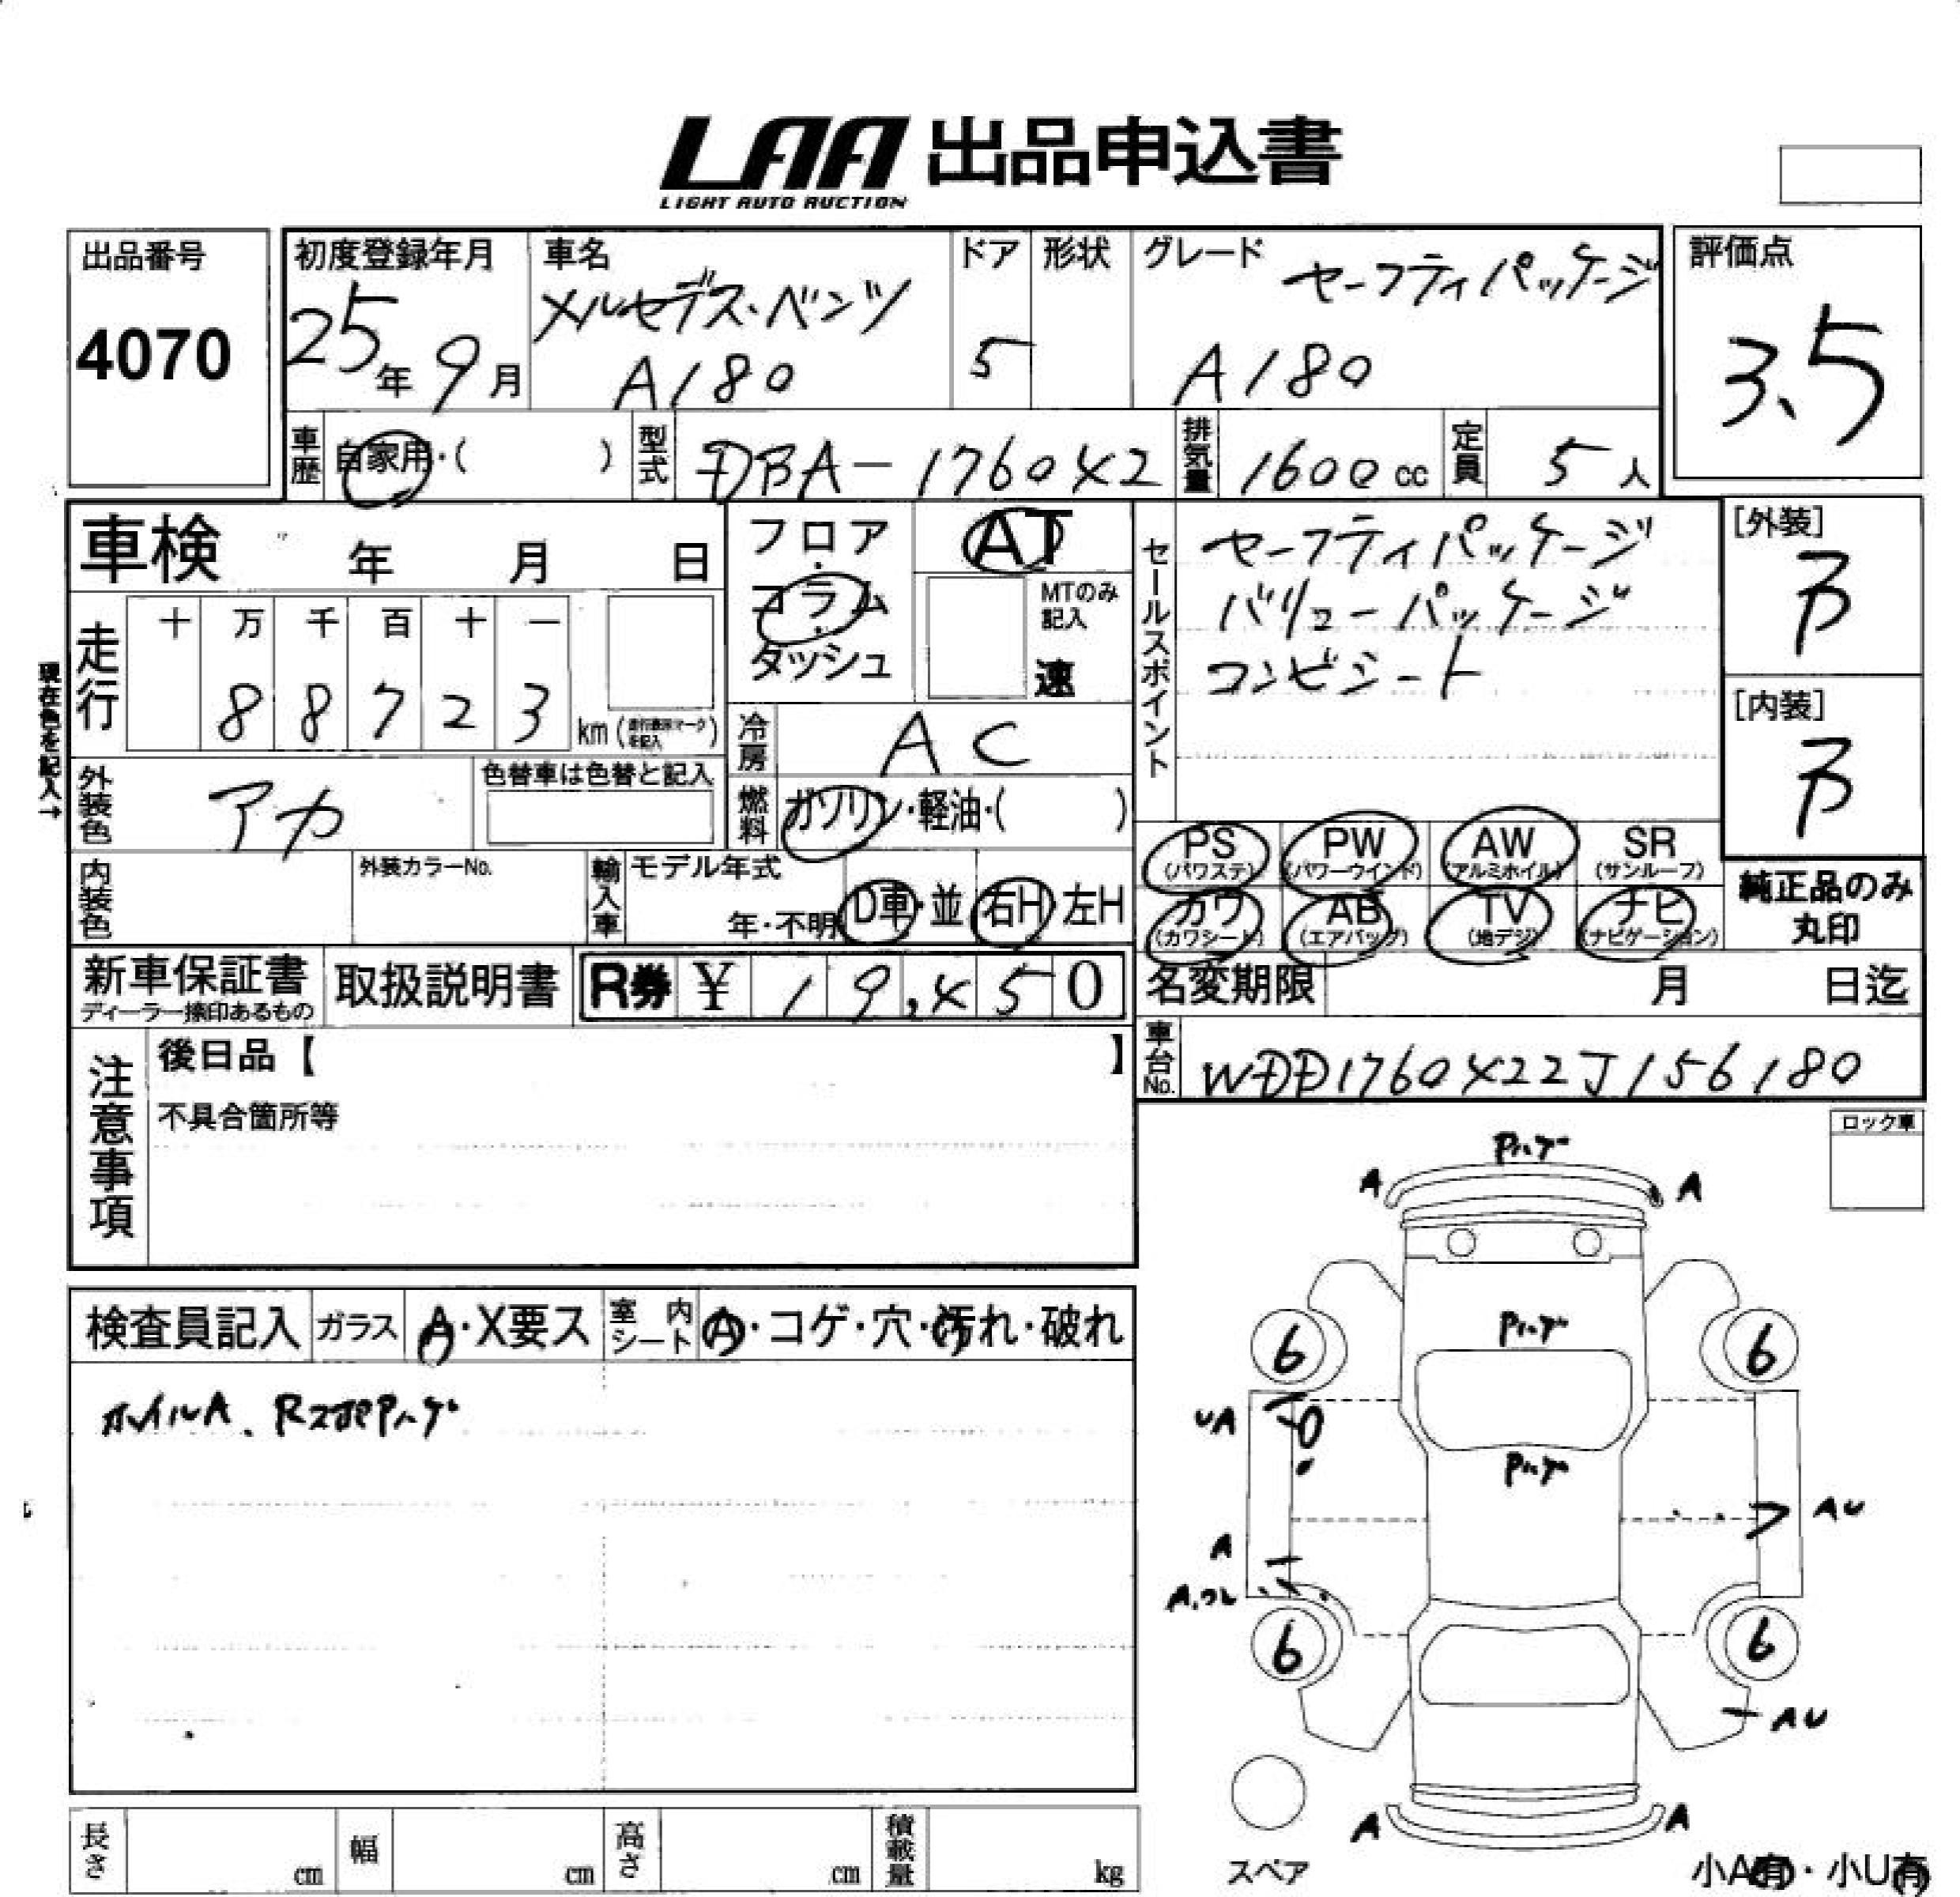 LAA 出品申込書
LIGHT AUTO AUCTION
出品番号
4070
初度登録年月
25年 9月
車名
メルセデス・ベンツ
A180
ドア
5
形状
グレード
セーフティパッケージ
A180
評価点
3.5
車歴 自家用・( )
型式 DBA-176042
排気量 1600 cc
定員 5 人
車検 年 月 日
フロア・コラム・ダッシュ
AT
MTのみ記入
速
セールスポイント
セーフティパッケージ
バリューパッケージ
コンビシート
[外装]
B
[内装]
B
走行
十 万 千 百 十 一
8 8 7 2 3
km (
現在色を記入→
冷房 AC
外装色 アカ
色替車は色替と記入
燃料 ガソリン・軽油・( )
PS (パワステ)
PW (パワーウインド)
AW (アルミホイル)
SR (サンルーフ)
カワ (カワシート)
AB (エアバッグ)
TV (地デジ)
ナビ (ナビゲーション)
純正品のみ
丸印
内装色
外装カラーNo.
輸入車
モデル年式
年・不明
D車・並
右H・左H
新車保証書
ディーラー捺印あるもの
取扱説明書
R券 ¥ 19,450
名変期限 月 日迄
車台No. WDD1760422J156180
注意事項
後日品【 】
不具合箇所等
ロック車
検査員記入
ガラス A・X要ス
室内シート A・コゲ・穴・汚れ・破れ
ホイルA、RスポPハゲ
Pハゲ
A A
Pハゲ
6 6
UA
Pハゲ
AU
A
A.コレ
6 6
AU
A A
スペア
小A有・小U有
長さ cm
幅 cm
高さ cm
積載量 kg